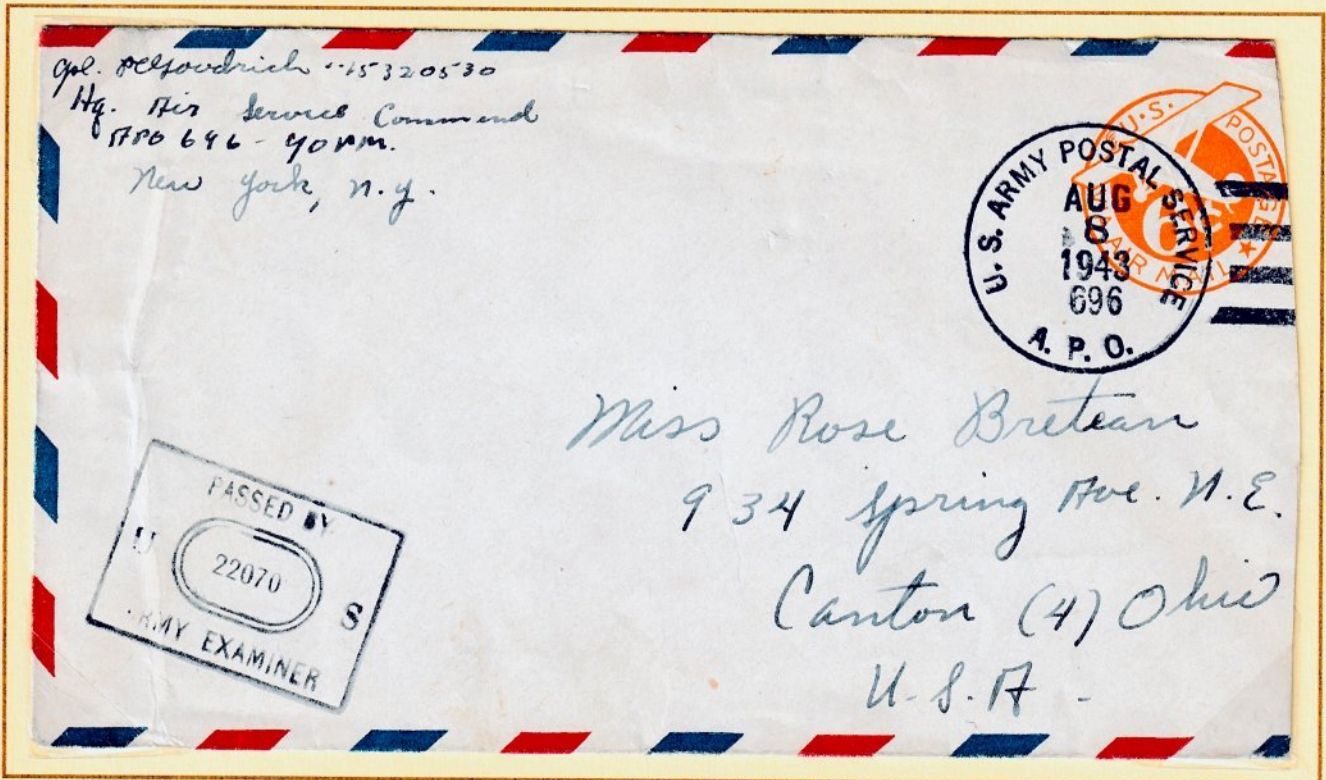 Cpl. Goodrich 15320530
Hq. Air Service Command
APO 696 - % P.M.
New York, N.Y.
U.S. POSTAGE
6
AIR MAIL
U.S. ARMY POSTAL SERVICE
AUG
8
1943
696
A. P. O.
Miss Rose Bretean
934 Spring Ave. N.E.
Canton (4) Ohio
U.S.A -
PASSED BY
U 22070 S
ARMY EXAMINER